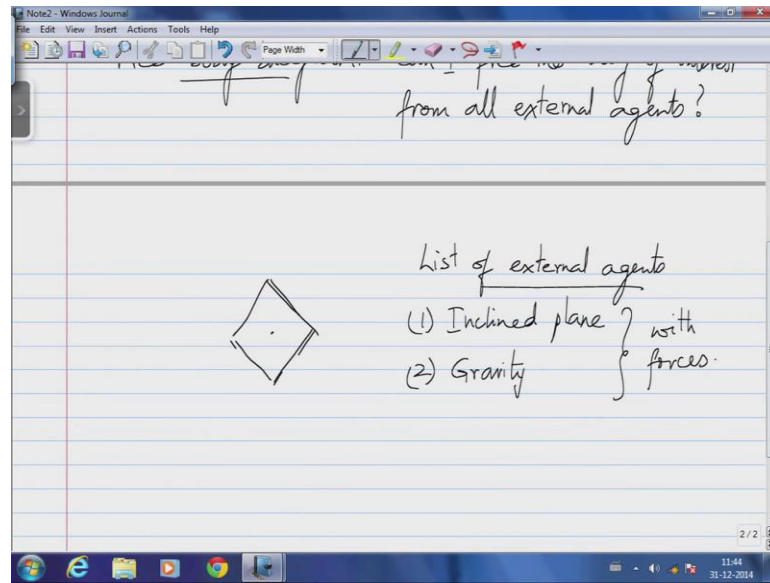 Note2 - Windows Journal
File Edit View Insert Actions Tools Help
Page Width
from all external agents?
List of external agents
(1) Inclined plane
(2) Gravity
with
forces.
2/2
11:44
31-12-2014